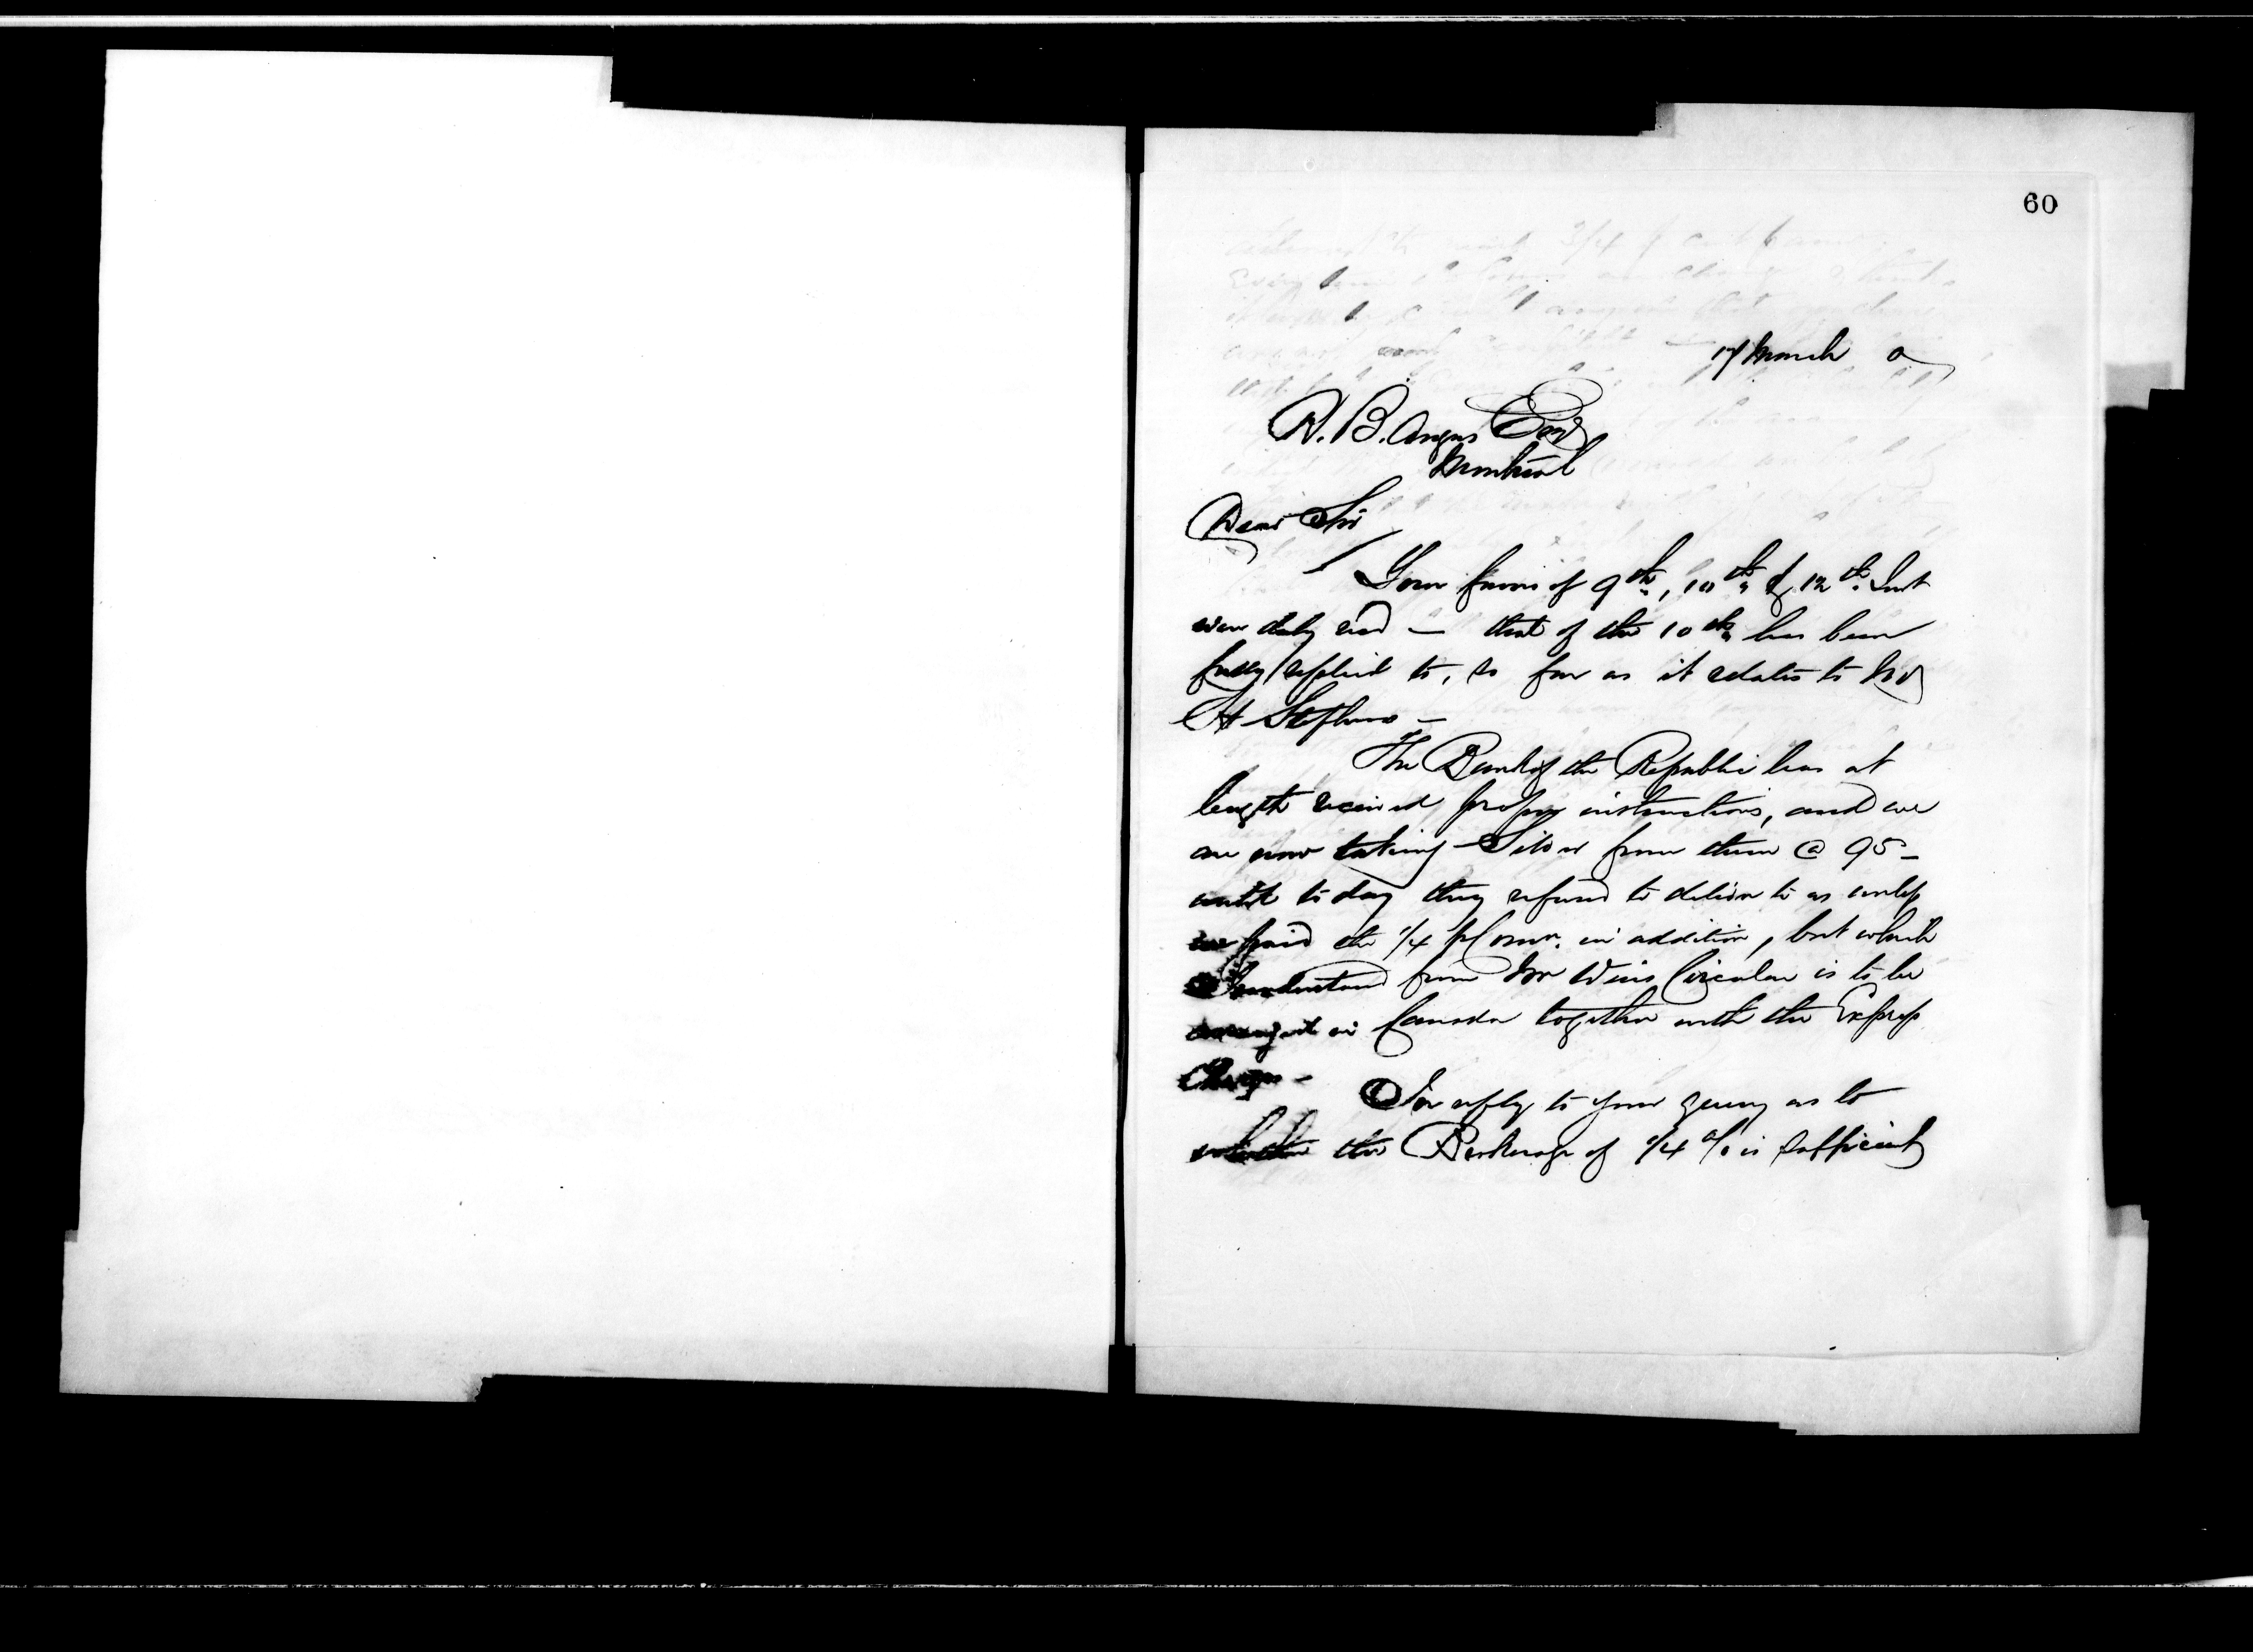 60
17 March 0
R. B. Angus Esq
Montreal
Dear Sir
Your favors of 9th, 10th & 12th Inst
were duly recd — that of the 10th has been
fully replied to, so far as it relates to Mr
St Stephens —
The Bank of the Republic has at
length received proper instructions, and we
are now taking Silver from them @ 95 —
until to day they refused to deliver to us unless
we paid the 1/4 p/ Comn. in addition, but which
I understand from Mr Weirs Circular is to be
arranged in Canada together with the Express
Charges —
In reply to your query as to
whether the Brokerage of 1/4 % is sufficient